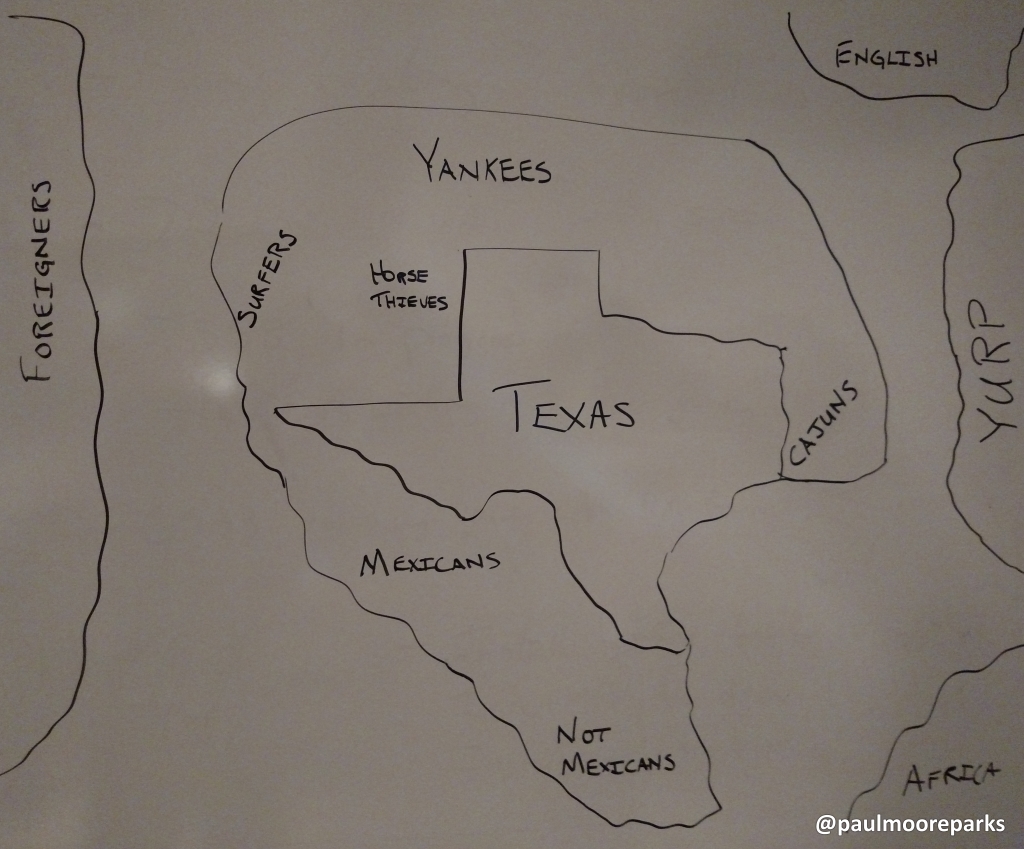 ENGLISH
YANKEES
FOREIGNERS
SURFERS
HORSE
THIEVES
YURP
TEXAS
CAJUNS
MEXICANS
NOT
MEXICANS
AFRICA
@paulmooreparks